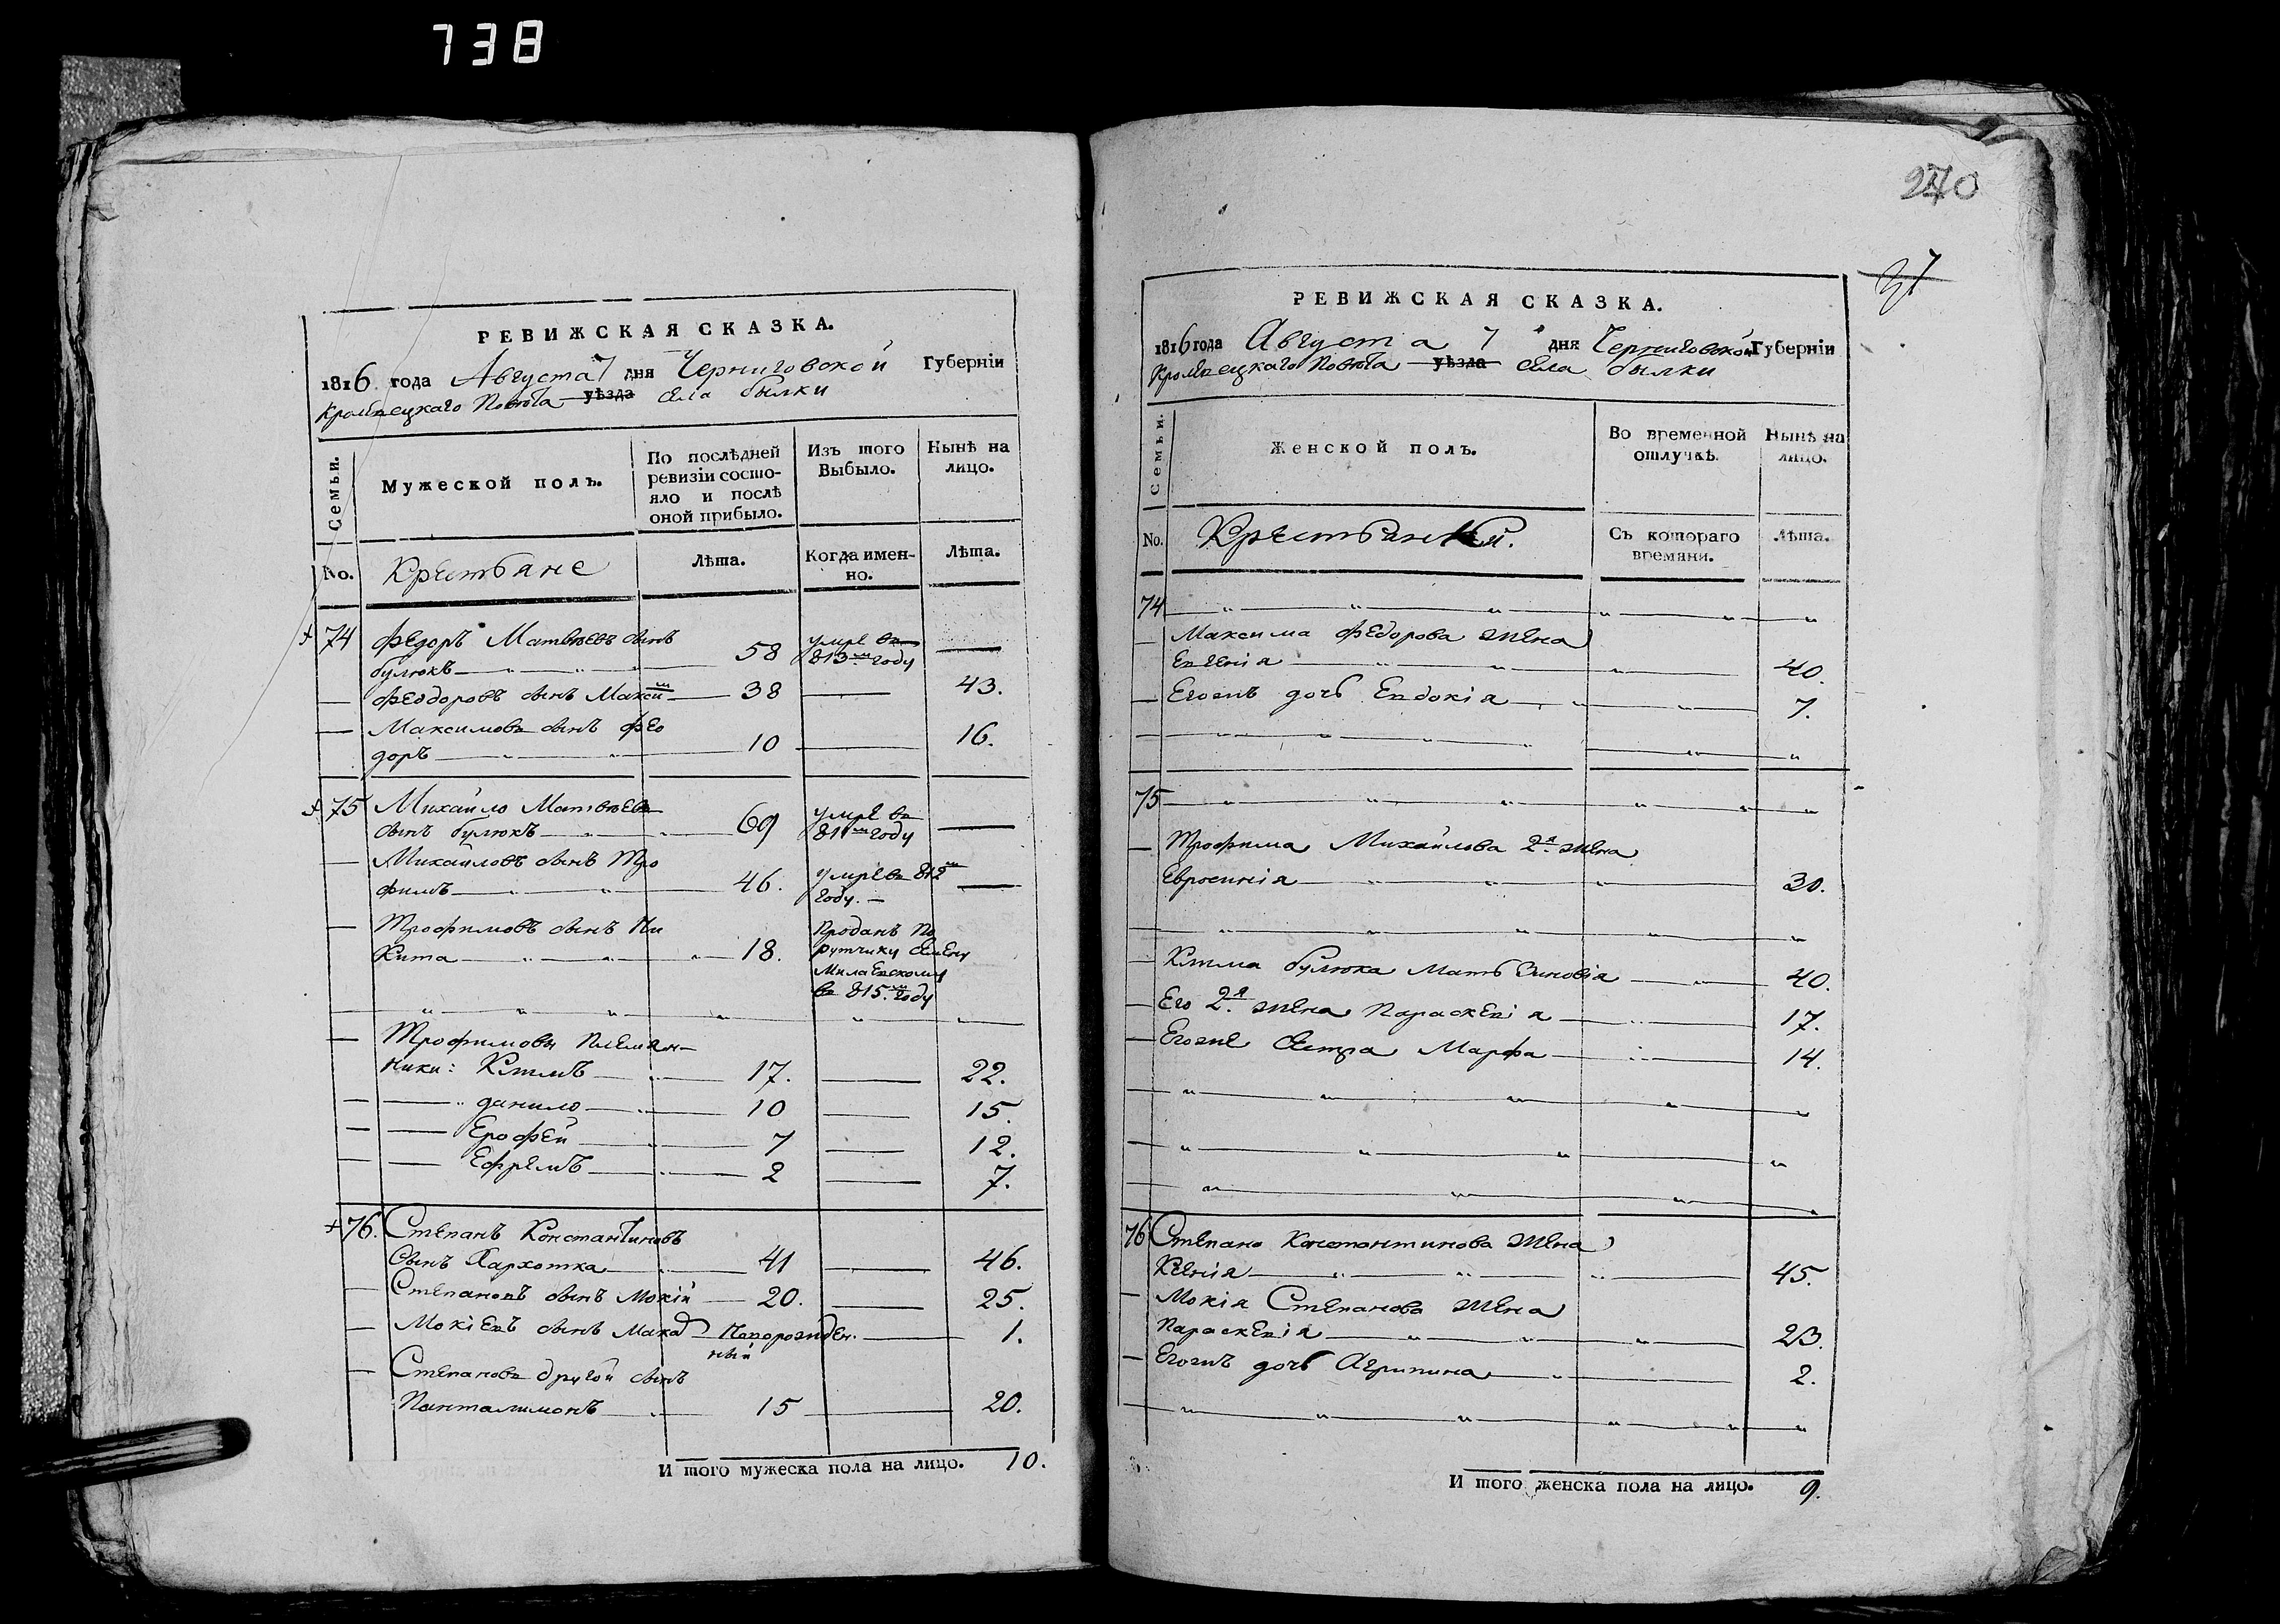 738
РЕВИЖСКАЯ СКАЗКА.
1816 года Августа 7 дня Черниговской Губерніи
Кролевецкаго Повѣта уѣзда села былки
Семьи.
Мужеской полъ.
По послѣдней
ревизіи состо-
яло и послѣ
оной прибыло.
Изъ того
Выбыло.
Нынѣ на
лицо.
No.
Крестьяне
Лѣта.
Когда имен-
но.
Лѣта.
74 Федоръ Матвѣевъ сынъ
булюкъ 58 умре въ 813м году
Феодоровъ сынъ Максим 38 43.
Максимовъ сынъ Фео
доръ 10 16.
75 Михайло Матвѣевъ
сынъ булюкъ 69 умре въ 811м году
Михайловъ сынъ Тро
фимъ 46. умре въ 812м году.
Трофимовъ сынъ Ни
кита 18. Проданъ По
рутчику Семену
Милаевскому
въ 815.м году
Трофимовы племян-
ники: Климъ 17. 22.
данило 10 15.
Ерофей 7 12.
Ефремъ 2 7.
76. Степанъ Константиновъ
Сынъ Хархотка 41 46.
Степановъ сынъ Мокій 20. 25.
Мокіевъ сынъ Макар Новорожден. 1.
ный
Степановъ другой сынъ
Панталимонъ 15 20.
И того мужеска пола на лицо. 10.
270
37
РЕВИЖСКАЯ СКАЗКА.
1816 года Августа 7 дня Черниговской Губерніи
Кролевецкаго Повѣта уѣзда села былки
Семьи.
Женской полъ.
Во временной
отлучкѣ.
Нынѣ на
лицо.
No.
Крестьянки.
Съ котораго
времяни.
Лѣта.
74
Максима Федорова жена
Евгенія 40.
Егожъ дочь Евдокія 7.
75
Трофима Михайлова 2я жена
Евросинія 30.
Клима булюка мать Зиновія 40.
Его 2.я жена Параскевія 17.
Егоже Сестра Марфа 14.
76 Степана Константинова жена
Ксенія 45.
Мокія Степанова жена
Параскевія 23.
Егожъ дочь Агрипина 2.
И того женска пола на лицо. 9.